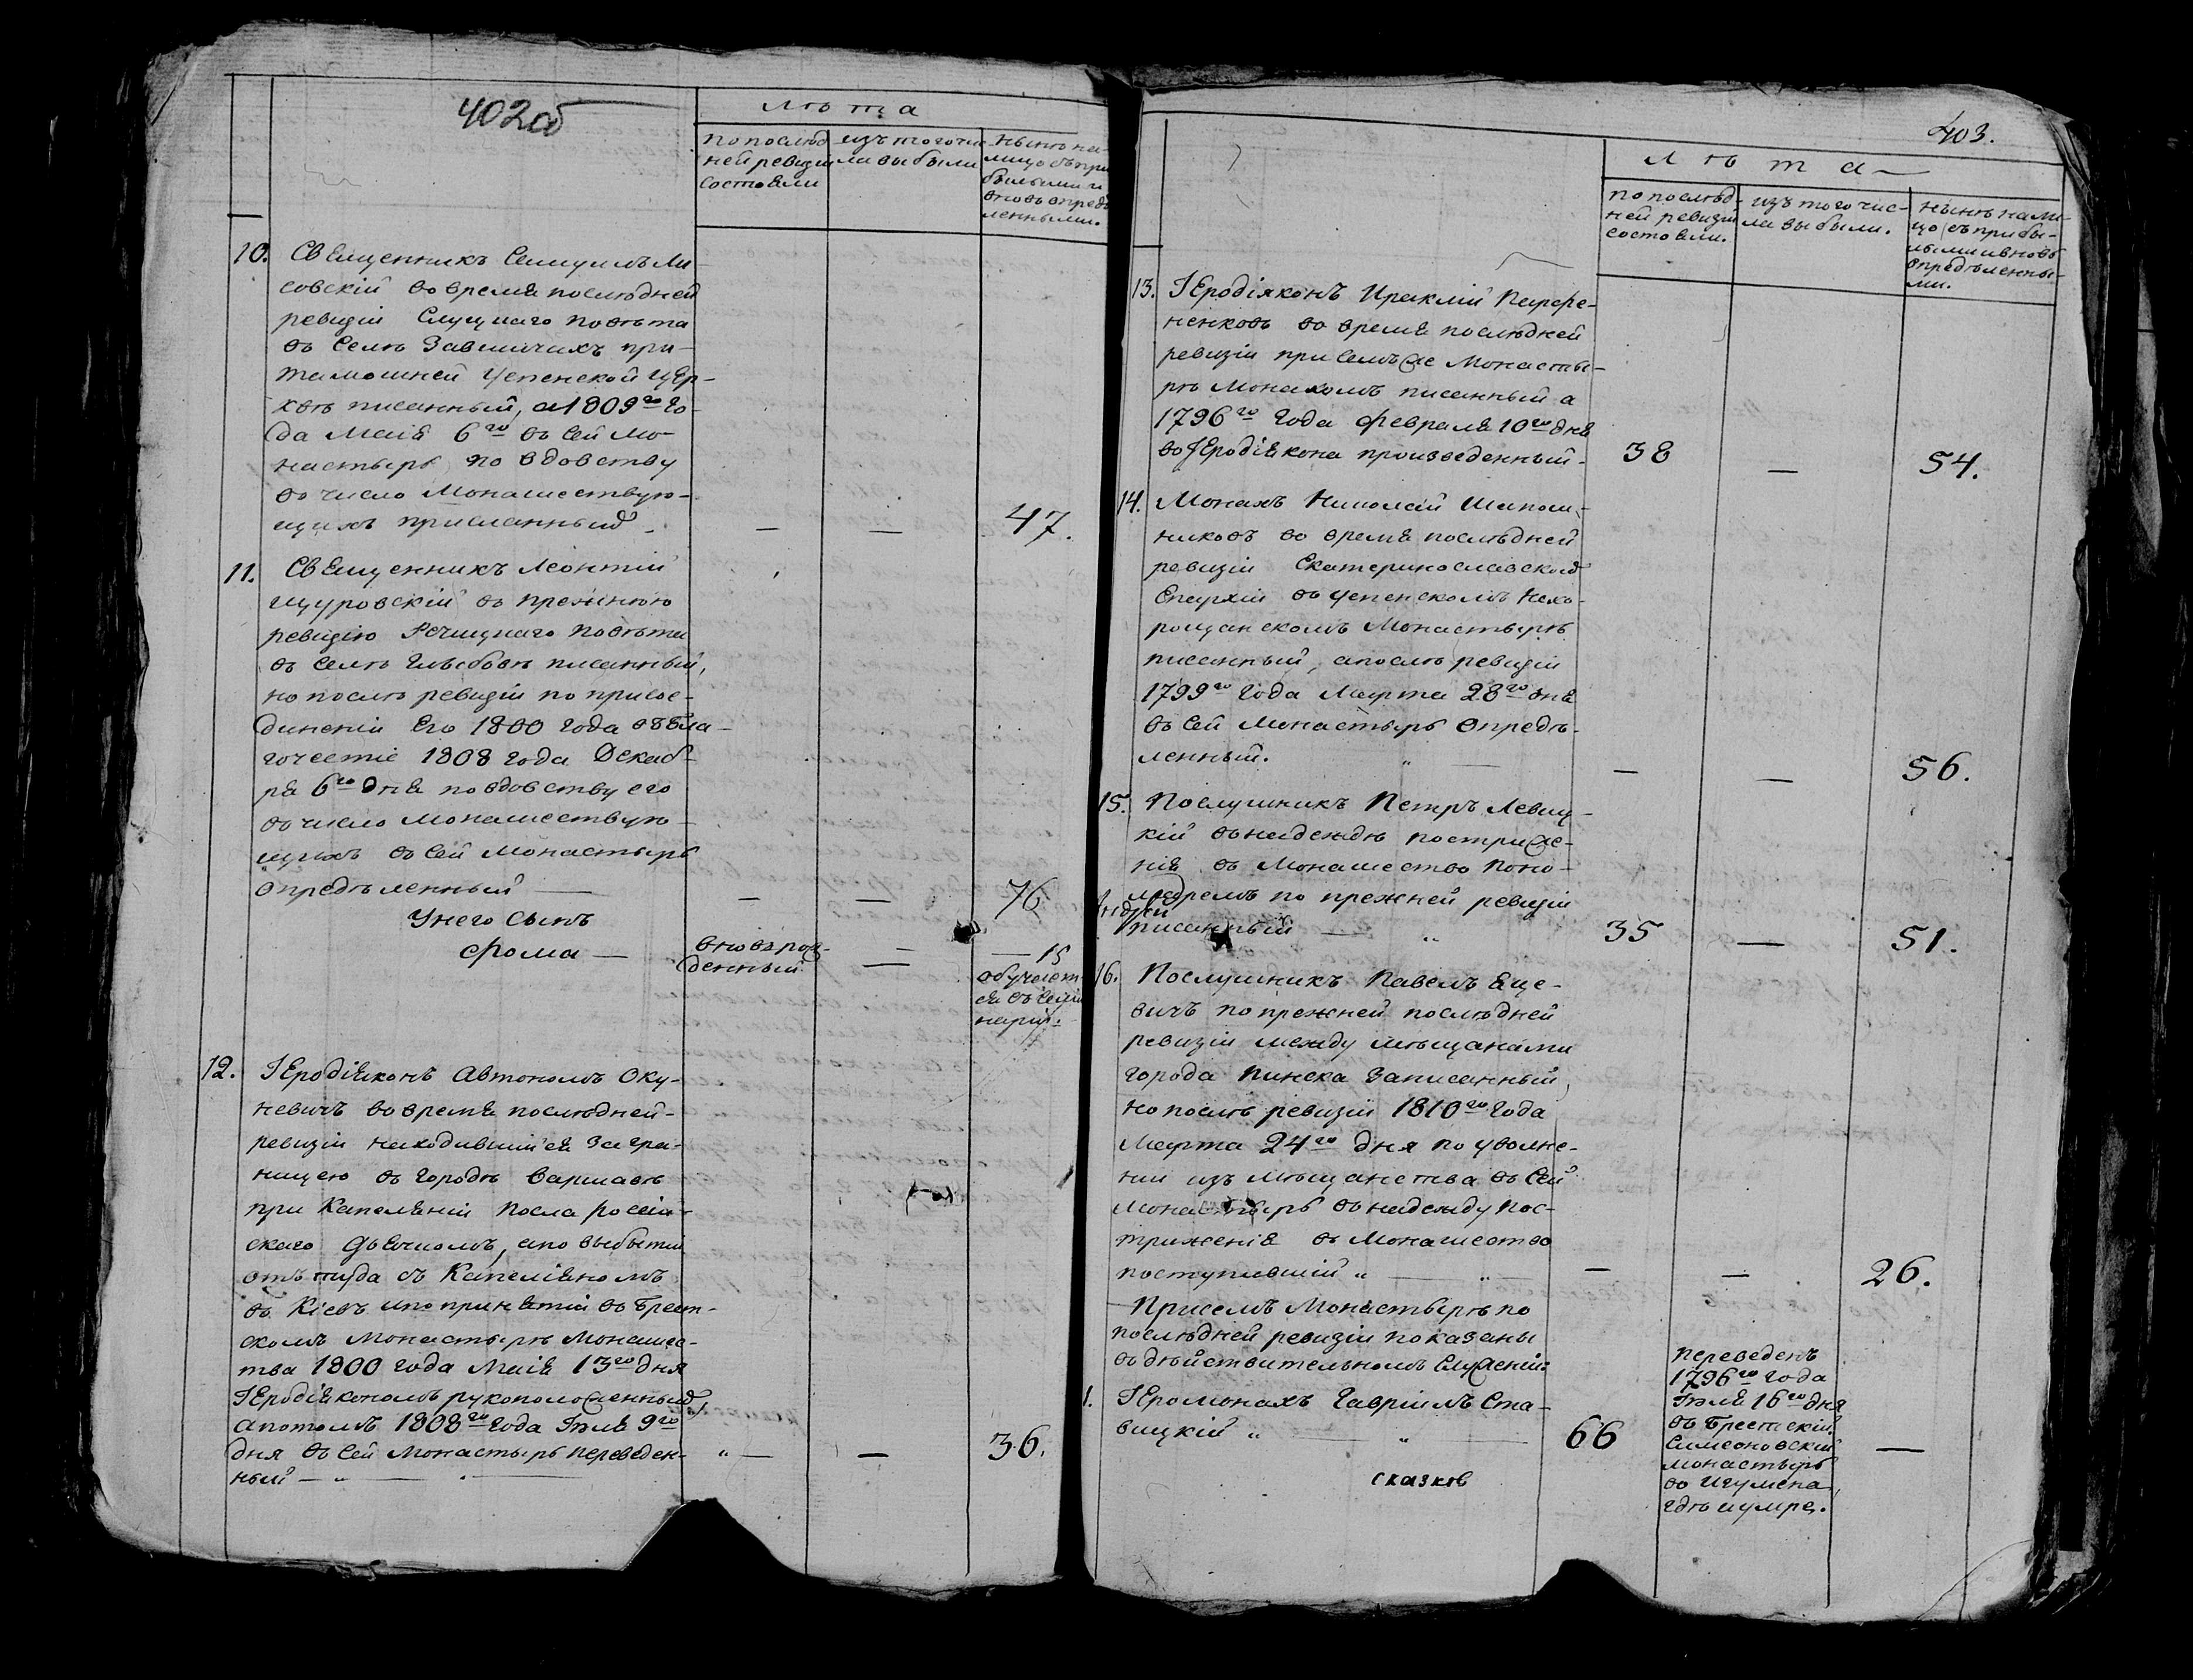 402об
Лѣта
по послѣд-
ней ревизіи
состояли
изъ того чи-
ла выбыли
нынѣ на-
лицо съ при
былыми и
вновь опредѣ
ленными.
10. Священникъ Самуилъ Ли-
совскій во время послѣдней
ревизіи Слуцкаго повѣта
въ селѣ Завшичахъ при
тамошней Успенской цер-
квѣ писанный, а 1809го го-
да Маія 6го въ сей мо-
настырь по вдовству
въ число монашествую-
щихъ присланный — — 47.
11. Священникъ Леонтій
Щуровскій въ прежнюю
ревизію Речицкаго повѣта
въ селѣ писанный,
но послѣ ревизіи по присое-
диненіи его 1800 года въ бла-
гочестіе 1808 года Декаб-
ря 6го дня по вдовству его
въ число монашествую-
щихъ въ сей монастырь
опредѣленный — — — 76
У него сынъ
Фома — вновь рож-
денный — — 15
обучает-
ся въ семи
наріи.
12. Іеродіяконъ Автономъ Оку-
невичъ во время послѣдней
ревизіи находившійся за гра-
ницею въ городѣ Варшавѣ
при Капеляніи посла россій-
скаго дьячкомъ, а по выбытіи
отъ туда съ Капеляномъ
въ Кіевъ и по принятіи въ Брест-
скомъ монастырѣ монашес-
тва 1800 года Маія 13го дня
Іеродіякономъ рукоположенный,
а потомъ 1808го года Іюля 9го
дня въ сей монастырь переведен-
ный — „ — „ — — 36.
403.
Лѣта
по послѣд-
ней ревизіи
состояли.
изъ того чис-
ла выбыли.
нынѣ нали-
цо съ прибы-
лыми и вновь
опредѣленны-
ми.
13. Іеродіяконъ Ираклій Парфе-
ненковъ во время послѣдней
ревизіи при семъ же монасты-
рѣ монахомъ писанный а
1796го года февраля 10го дня
во Іеродіякона произведенный. 38 — 54.
14. Монахъ Николай Шапош-
никовъ во время послѣдней
ревизіи Екатеринославской
Епархіи въ Успенскомъ Нехо-
рощанскомъ монастырѣ
писанный, а послѣ ревизіи
1799го года Марта 28го дня
въ сей монастырь опредѣ-
ленный. „ — — — 56.
15. Послушникъ Петръ Левиц-
кій въ надеждѣ постриже-
нія въ монашество поно-
маремъ по прежней ревизіи
писанный — „ 35 — 51.
16. Послушникъ Павелъ Яце-
вичъ по прежней послѣдней
ревизіи между мѣщанами
города Пинска записанный,
но послѣ ревизіи 1810го года
Марта 24го дня по уволне-
ніи изъ мѣщанства въ сей
монастырь въ надежду пос-
триженія въ монашество
поступившій „ — „ — — — 26.
При семъ монастырѣ по
послѣдней ревизіи показаны
въ дѣйствительномъ служеніи:
1. Іеромонахъ Гавріилъ Ста-
вицкій „ — „ — 66
переведенъ
1796го года
Іюля 16го дня
въ Брестскій
Симеоновскій
монастырь
во Игумена,
гдѣ и умре. —
сказков